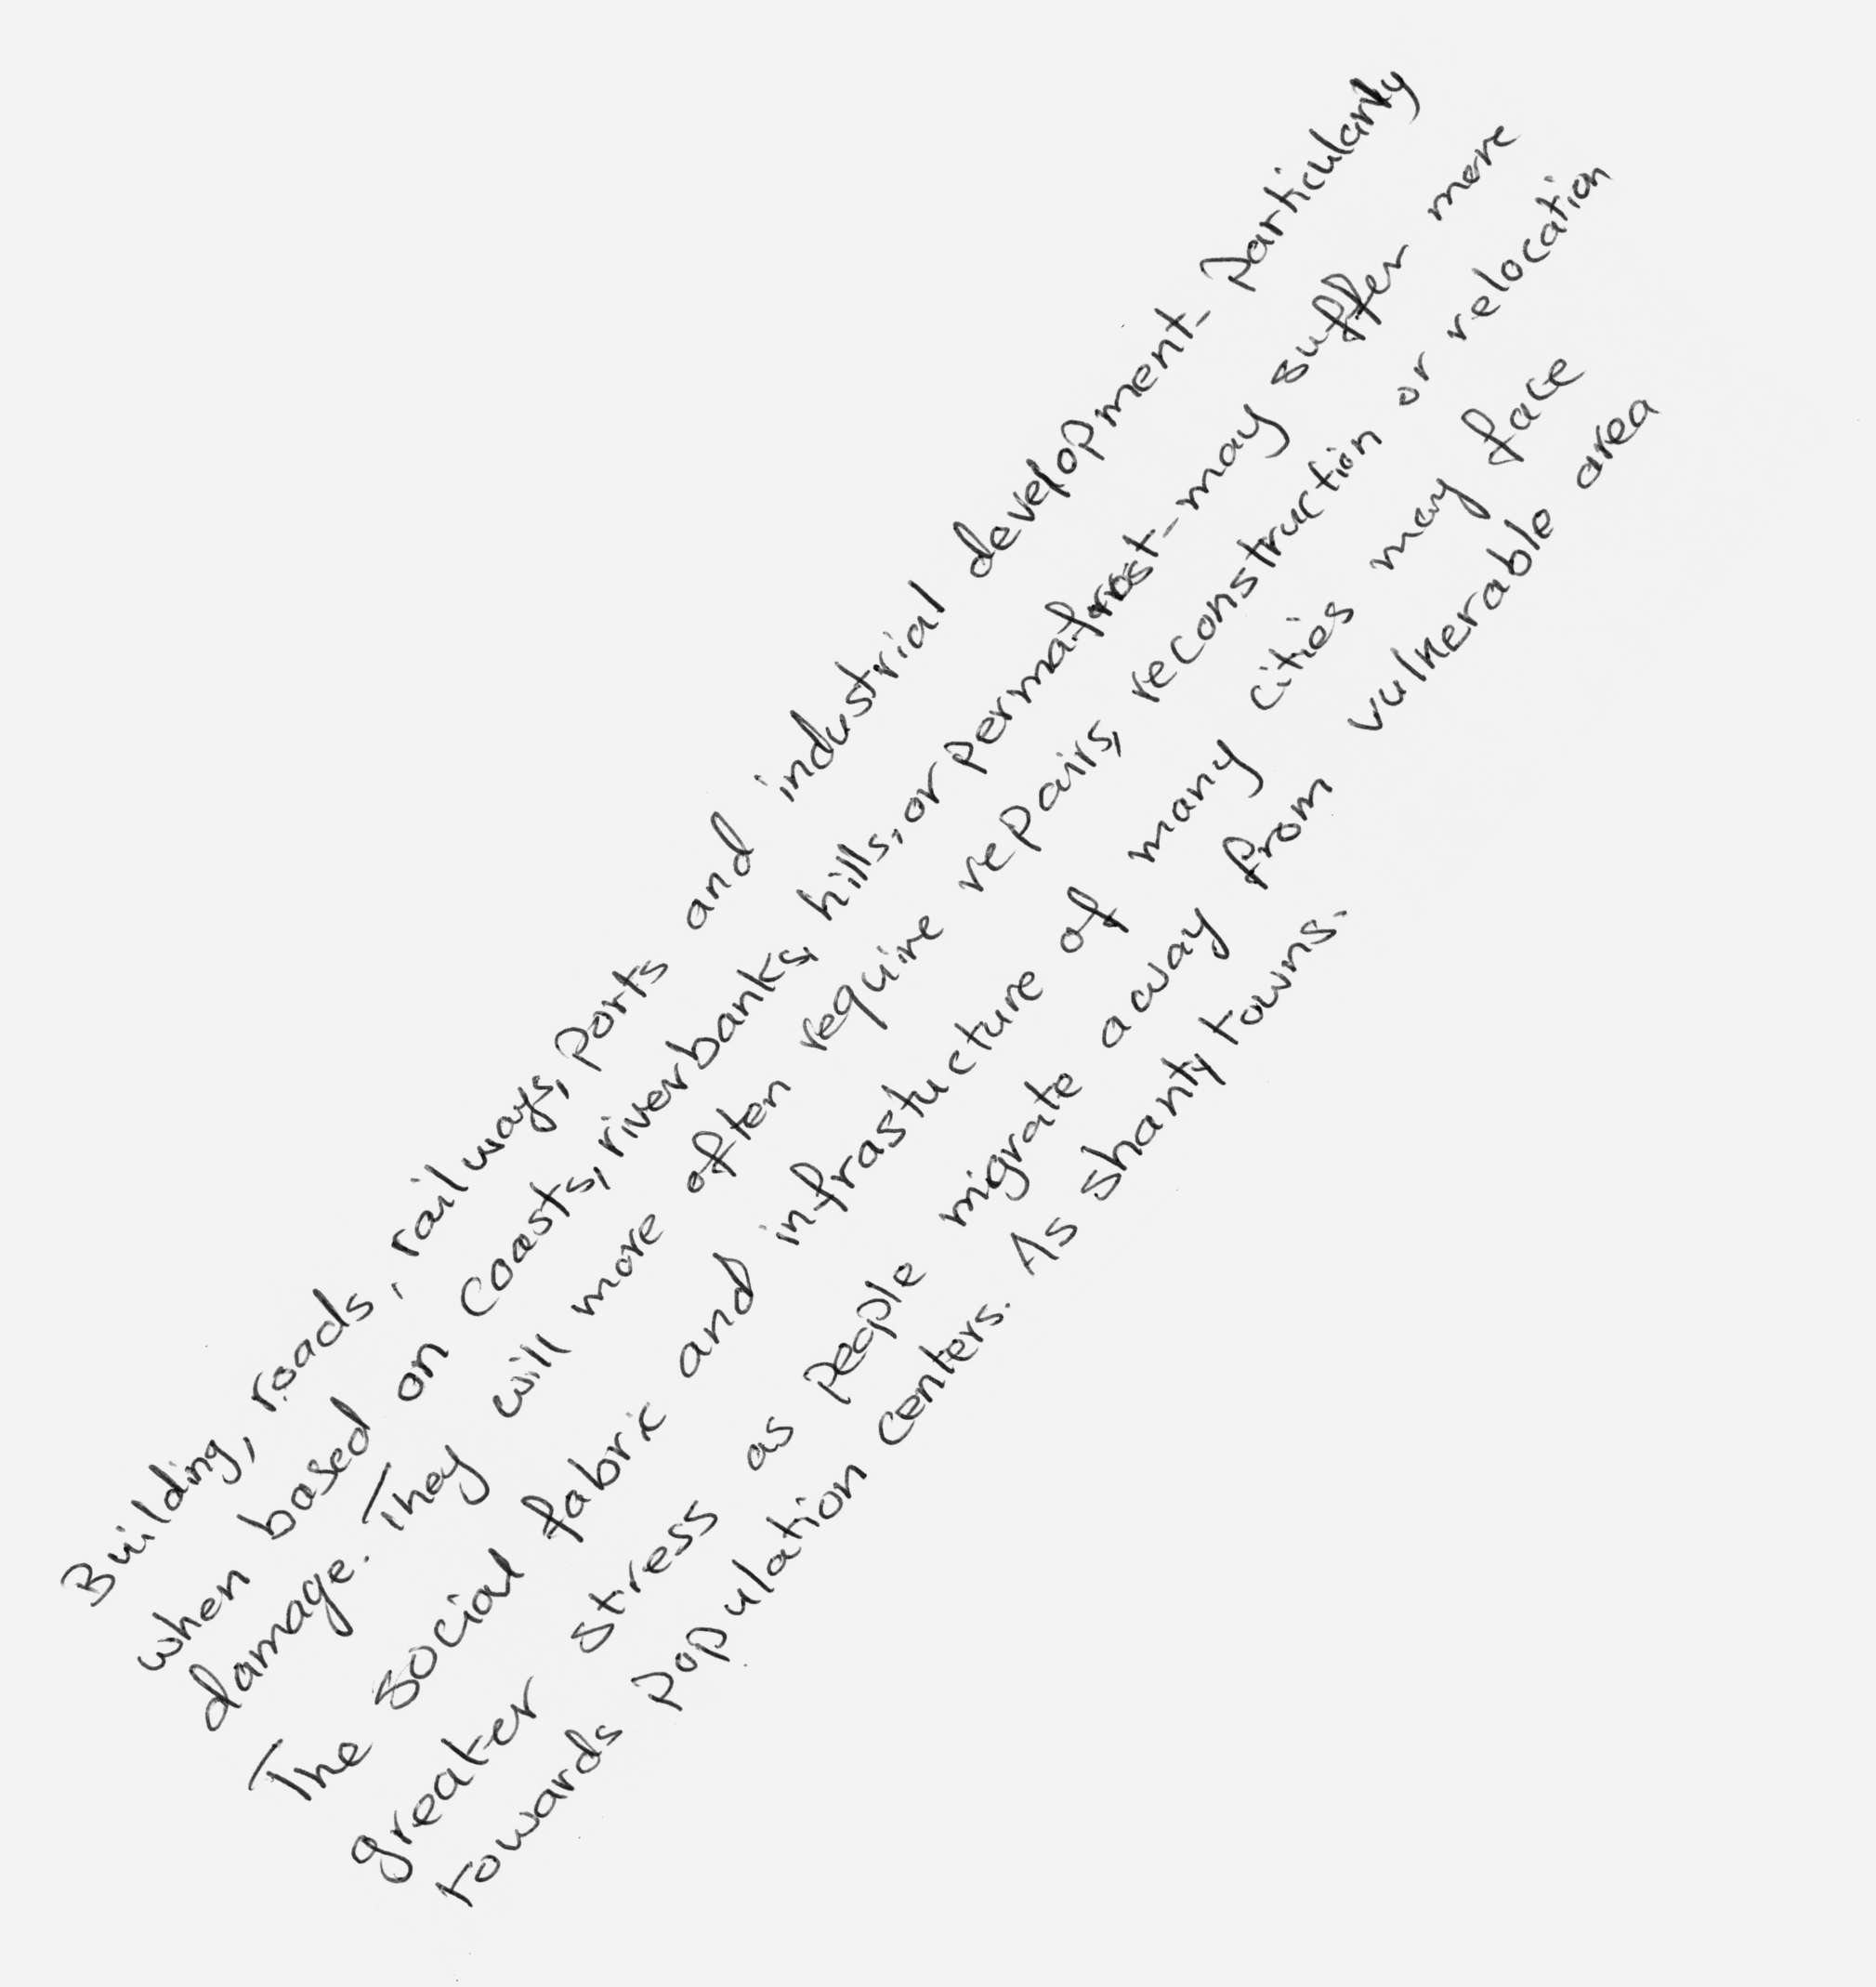 Building, roads, railways, ports and industrial development- particularly
when based on coasts, riverbanks, hills, or permafrost-may suffer more
damage. They will more often require repairs, reconstruction or relocation
The social fabric and infrastucture of many cities may face
greater stress as people migrate away from vulnerable area
towards population centers. As shanty towns.